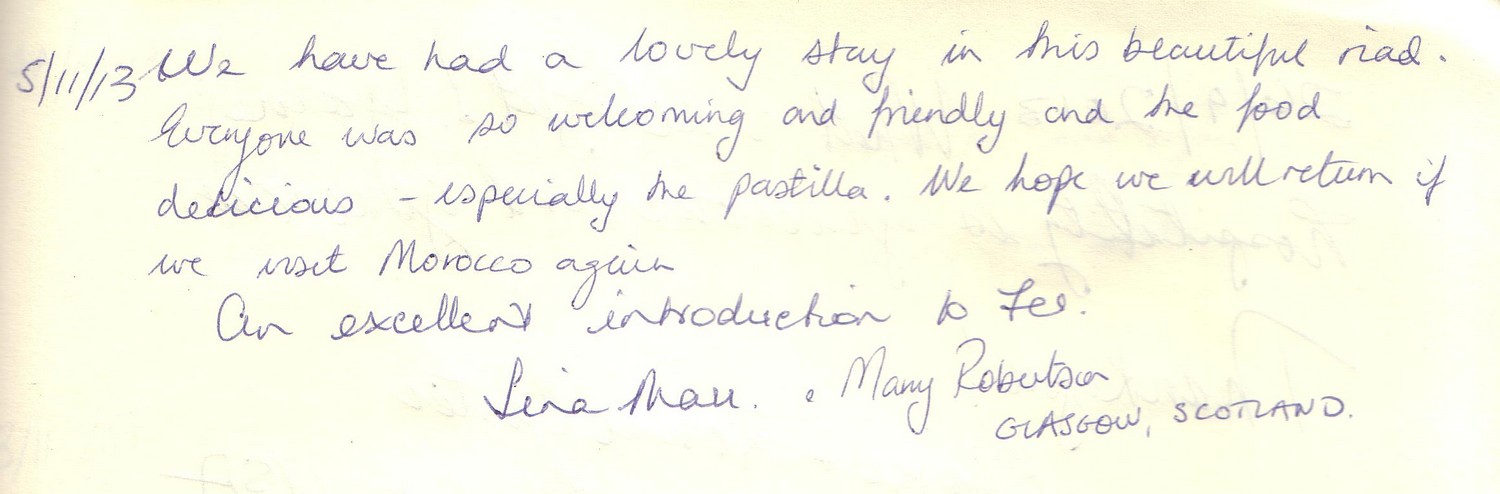 5/11/13 We have had a lovely stay in this beautiful riad.
Everyone was so welcoming and friendly and the food
delicious - especially the pastilla. We hope we will return if
we visit Morocco again
An excellent introduction to Fes.
Mary Robertson
GLASGOW, SCOTLAND.